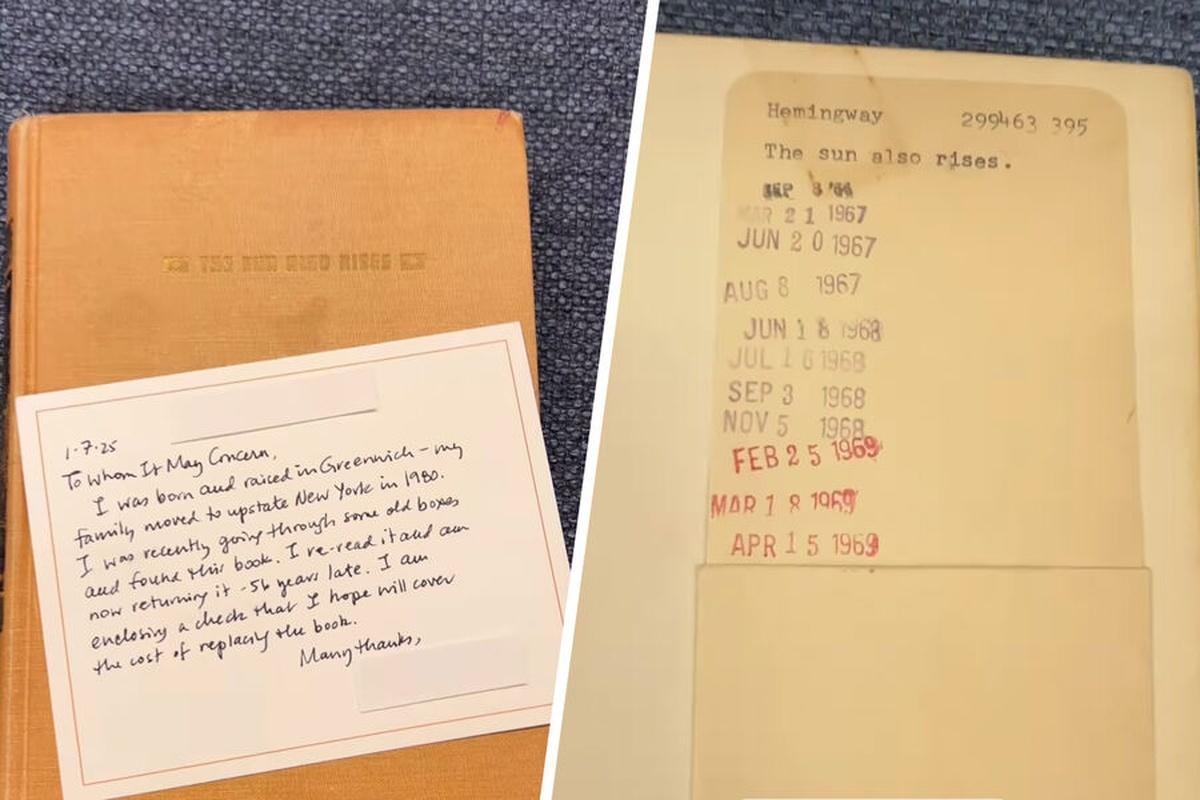 THE SUN ALSO RISES
1.7.25
To Whom It May Concern,
I was born and raised in Greenwich - my
family moved to upstate New York in 1980.
I was recently going through some old boxes
and found this book. I re-read it and am
now returning it - 56 years late. I am
enclosing a check that I hope will cover
the cost of replacing the book.
Many thanks,
Hemingway 299463 395
The sun also rises.
SEP 8 '66
MAR 21 1967
JUN 20 1967
AUG 8 1967
JUN 18 1968
JUL 16 1968
SEP 3 1968
NOV 5 1968
FEB 25 1969
MAR 18 1969
APR 15 1969